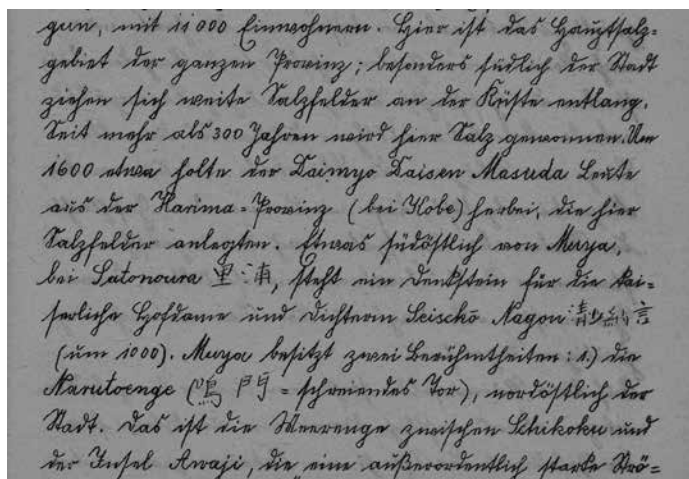 gun, mit 11000 Einwohnern. Hier ist das Hauptsalz=
gebiet der ganzen Provinz; besonders südlich der Stadt
ziehen sich weite Salzfelder an der Küste entlang.
Seit mehr als 300 Jahren wird hier Salz gewonnen. Um
1600 etwa holte der Daimyo Daisen Masuda Leute
aus der Harima=Provinz (bei Kobe) herbei, die hier
Salzfelder anlegten. Etwas südöstlich von Muya,
bei Satonoura 里浦, steht ein Denkstein für die kai=
serliche Hofdame und Dichterin Seischō Nagon 清少納言
(um 1000). Muya besitzt zwei Berühmtheiten: 1.) die
Narutoenge (鳴門 = schreiendes Tor), nordöstlich der
Stadt. Das ist die Meerenge zwischen Schikoku und
der Insel Awaji, die eine außerordentlich starke Strö=